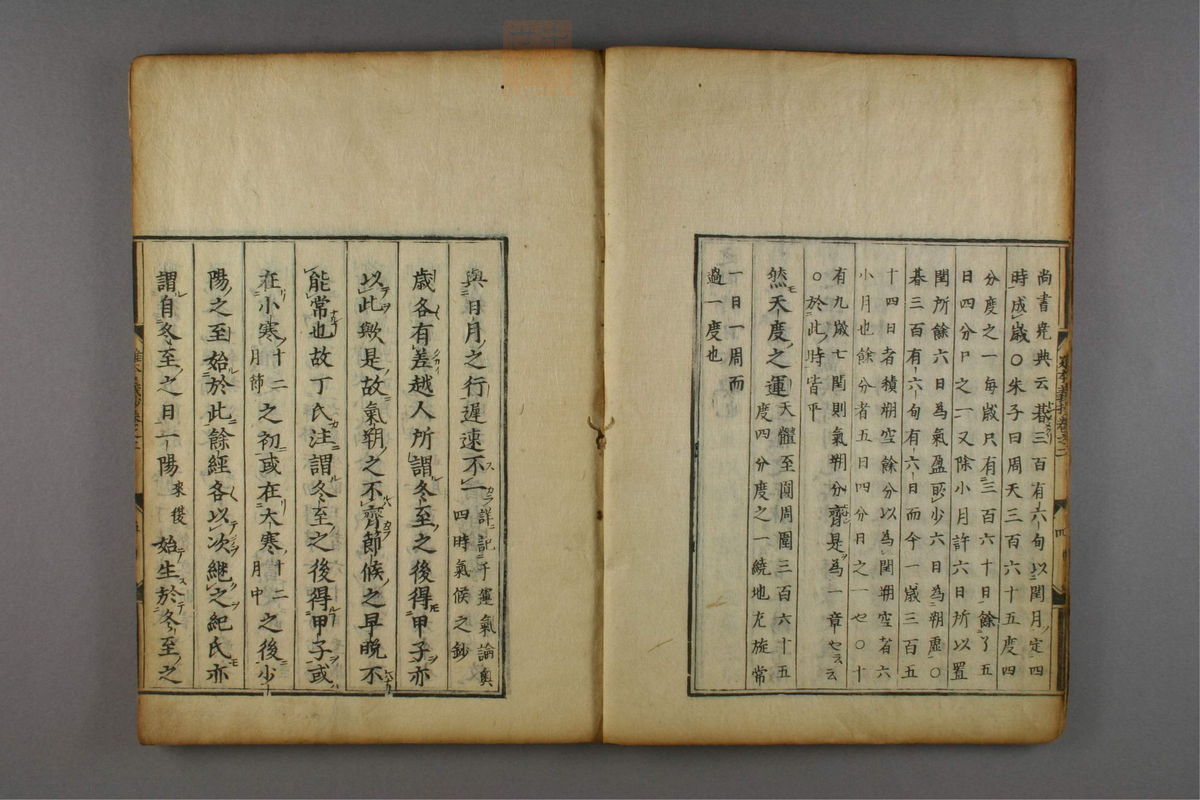 尚書堯典云朞三百有六旬以閏月定四
時成歲○朱子曰周天三百六十五度四
分度之一每歲只有三百六十日餘了五
日四分日之一又除小月許六日所以置
閏所餘六日為氣盈所少六日為朔虛○
朞三百有六旬有六日而今一歲三百五
十四日者積朔空餘分以為閏朔空者六
小月也餘分者五日四分日之一也○十
有九歲七閏則氣朔分齊是為一章也云云
○於此時皆平
然天度之運天體至圓周圍三百六十五
度四分度之一繞地左旋常
一日一周而
過一度也
與日月之行遲速不一詳記于運氣論奧
四時氣候之鈔
歲各有差越人所謂冬至之後得甲子亦
以此歟是故氣朔之不齊節候之早晚不
能常也故丁氏注謂冬至之後得甲子或
在小寒十二
月節之初或在大寒十二
月中之後少
陽之至始於此餘經各以次繼之紀氏亦
謂自冬至之日一陽來復始生於冬至之